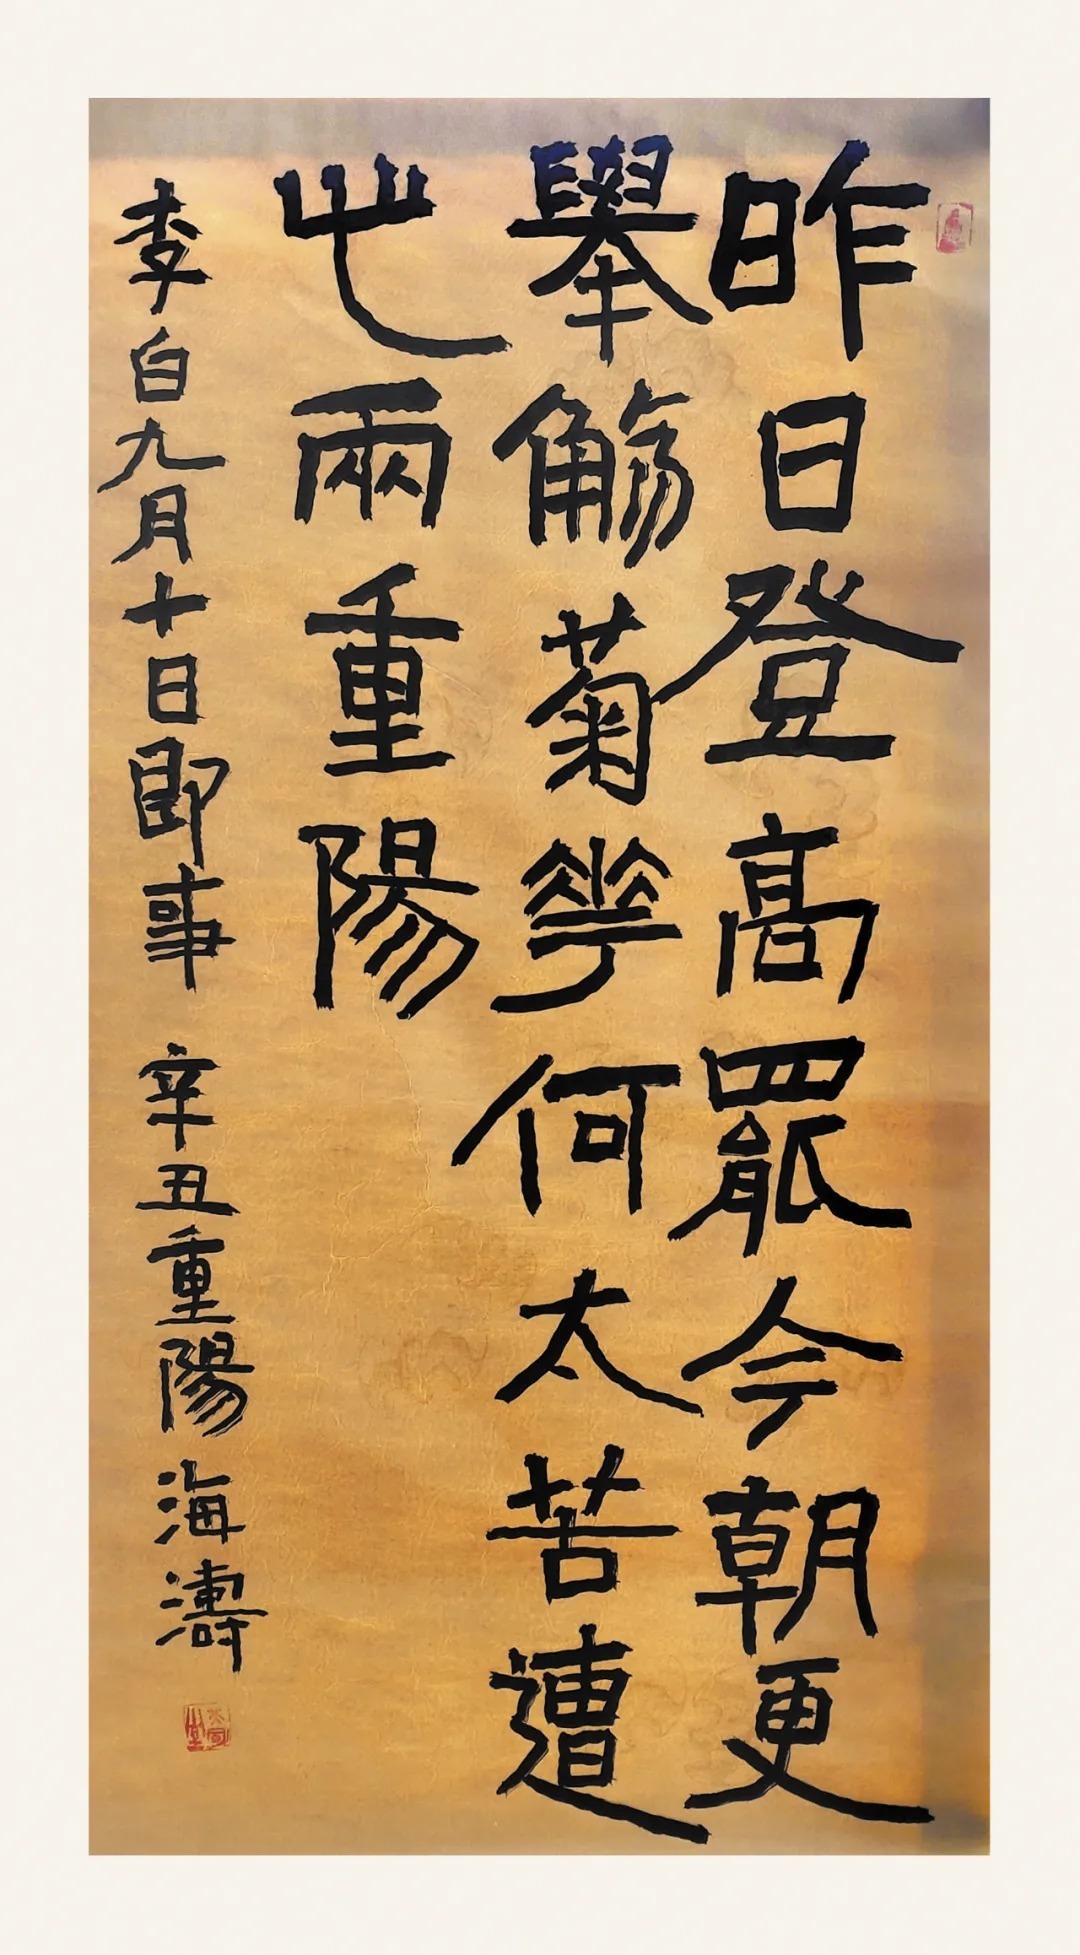 昨日登高罷今朝更
舉觴菊華何太苦遭
此兩重陽
李白九月十日即事 辛丑重陽 海濤